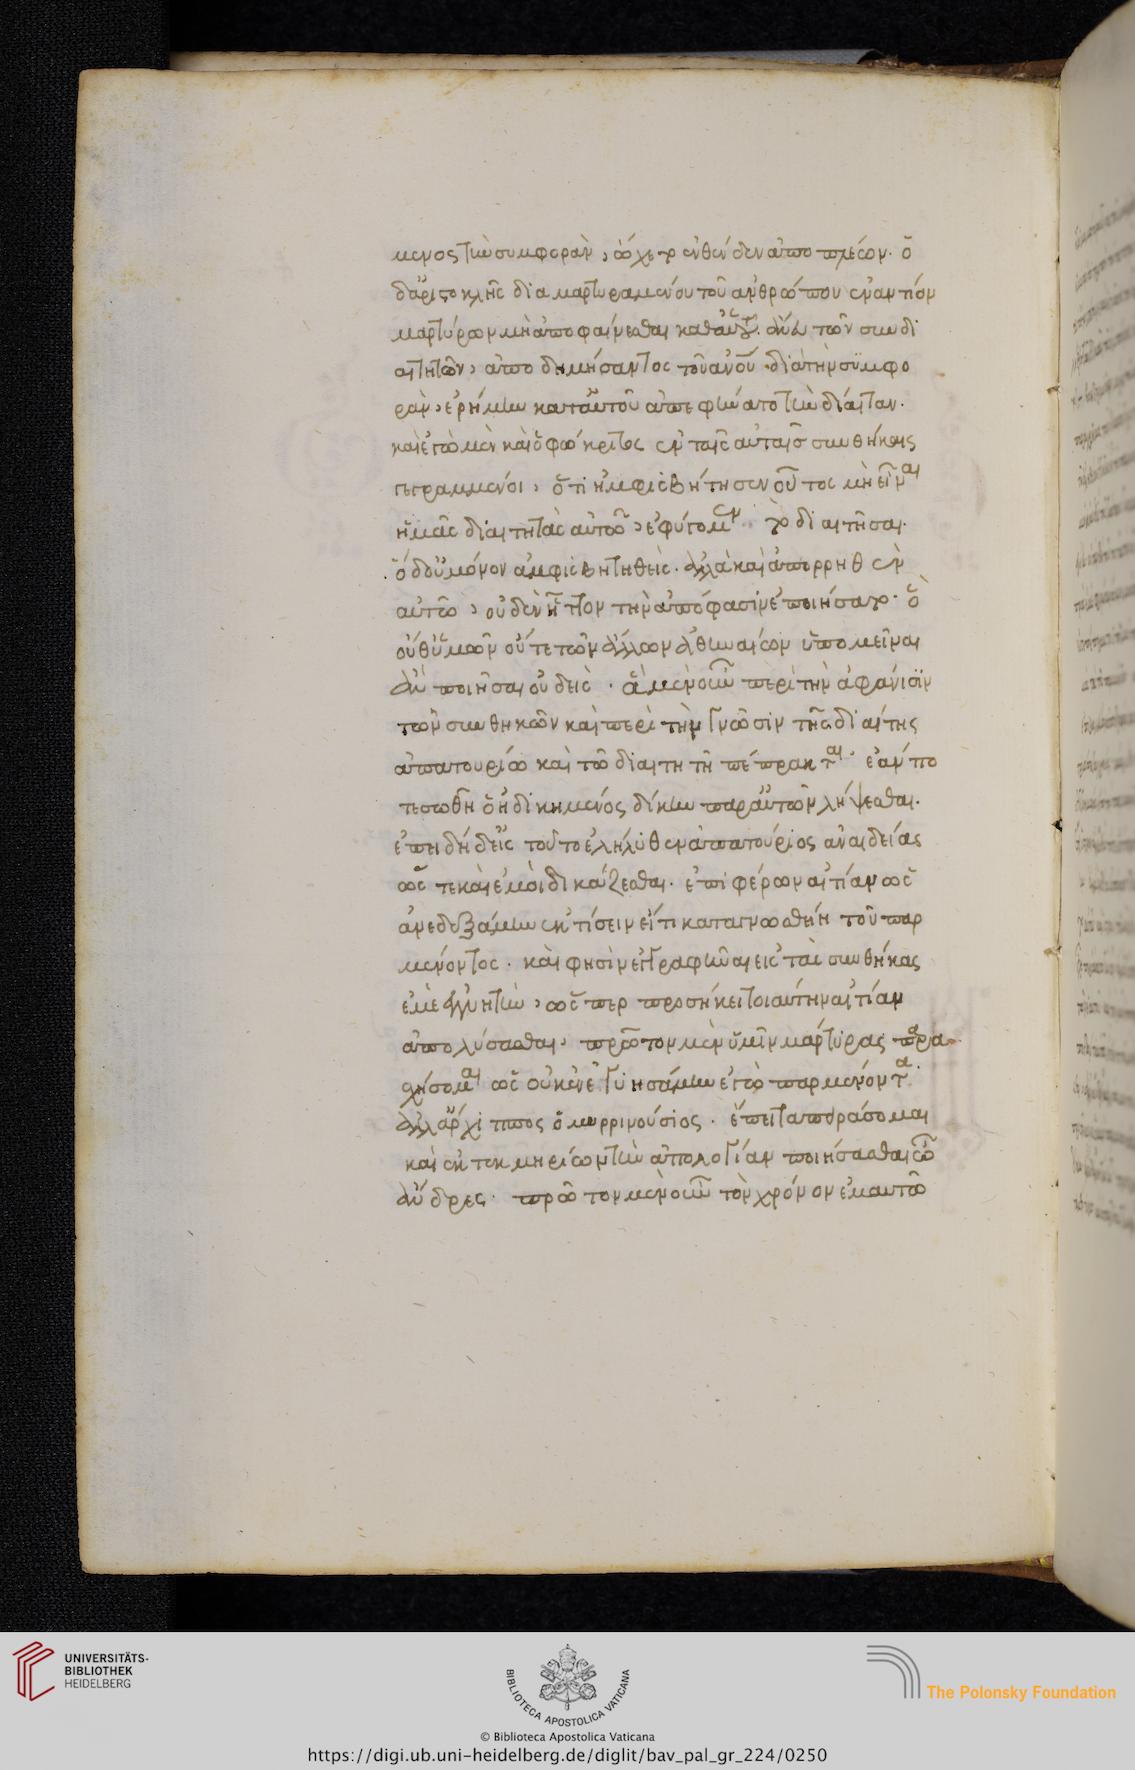 μενος τὴν συμφορὰν, ὤχετο ἐνθένδεν ἀποπλέων. ὁ
δ' ἀριστοκλῆς διαμαρτυραμένου τοῦ ἀνθρώπου ἐναντίον
μαρτύρων μὴ ἀποφαίνεσθαι καθ' αὑτοῦ ἄνευ τῶν συνδι
αιτητῶν, ἀποδημήσαντος τοῦ ἀνοῦ διὰ τὴν συμφο
ρὰν, ἐρήμην κατ' αὐτοῦ ἀπεφήνατο τὴν δίαιταν.
καὶ ἐγὼ μὲν καὶ ὁ φώκριτος ἐν ταῖς αὐταῖς συνθήκαις
γεγραμμένοι, ὅτι ἠμφισβήτησεν οὗτος μὴ εἶναι
ἡμᾶς διαιτητὰς αὐτῷ, ἐφύγομεν τὸ διαιτῆσαι.
ὁ δ' οὐ μόνον ἀμφισβητηθεὶς. ἀλλὰ καὶ ἀπορρηθὲν
αὐτῷ, οὐδὲν ἧττον τὴν ἀπόφασιν ἐποιήσατο. ὃ
οὔθ' ὑμῶν οὔτε τῶν ἄλλων ἀθηναίων ὑπομεῖναι
ἂν ποιῆσαι οὐδεὶς. ἃ μὲν οὖν περὶ τὴν ἀφάνισιν
τῶν συνθηκῶν καὶ περὶ τὴν γνῶσιν τῆς διαίτης
ἀπατουρίω καὶ τῶ διαιτητῆ πέπρακται. ἐάν πο
τε σωθῆ ὁ ἠδικημένος δίκην παρ' αὐτῶν λήψεσθαι.
ἐπειδὴ δ' εἰς τοῦτο ἐλήλυθεν ἀπατούριος ἀναιδείας
ὥς τε καὶ ἐμοὶ δικάζεσθαι. ἐπιφέρων αἰτίαν ὡς
ἀνεδεξάμην ἐκτίσειν εἴ τι καταγνωσθείη τοῦ παρ
μένοντος. καὶ φησὶν ἐγγραφῆναι εἰς τὰς συνθήκας
ἐμὲ ἐγγυητὴν, ὥς περ προσήκει τοιαύτην αἰτίαν
ἀπολύσασθαι, πρῶτον μὲν ὑμῖν μάρτυρας παρα
σχήσομαι ὡς οὐκ ἐνεγυησάμην ἐγὼ παρμένοντα.
ἀλλ' ἄρχιππος ὁ μυρρινούσιος. ἔπειτα πειράσομαι
καὶ ἐκ τεκμηρίων τὴν ἀπολογίαν ποιήσασθαι ὦ
ἄνδρες. πρῶτον μὲν οὖν τὸν χρόνον ἐμαυτῶ
UNIVERSITÄTS-
BIBLIOTHEK
HEIDELBERG
BIBLIOTECA APOSTOLICA VATICANA
The Polonsky Foundation
© Biblioteca Apostolica Vaticana
https://digi.ub.uni-heidelberg.de/diglit/bav_pal_gr_224/0250